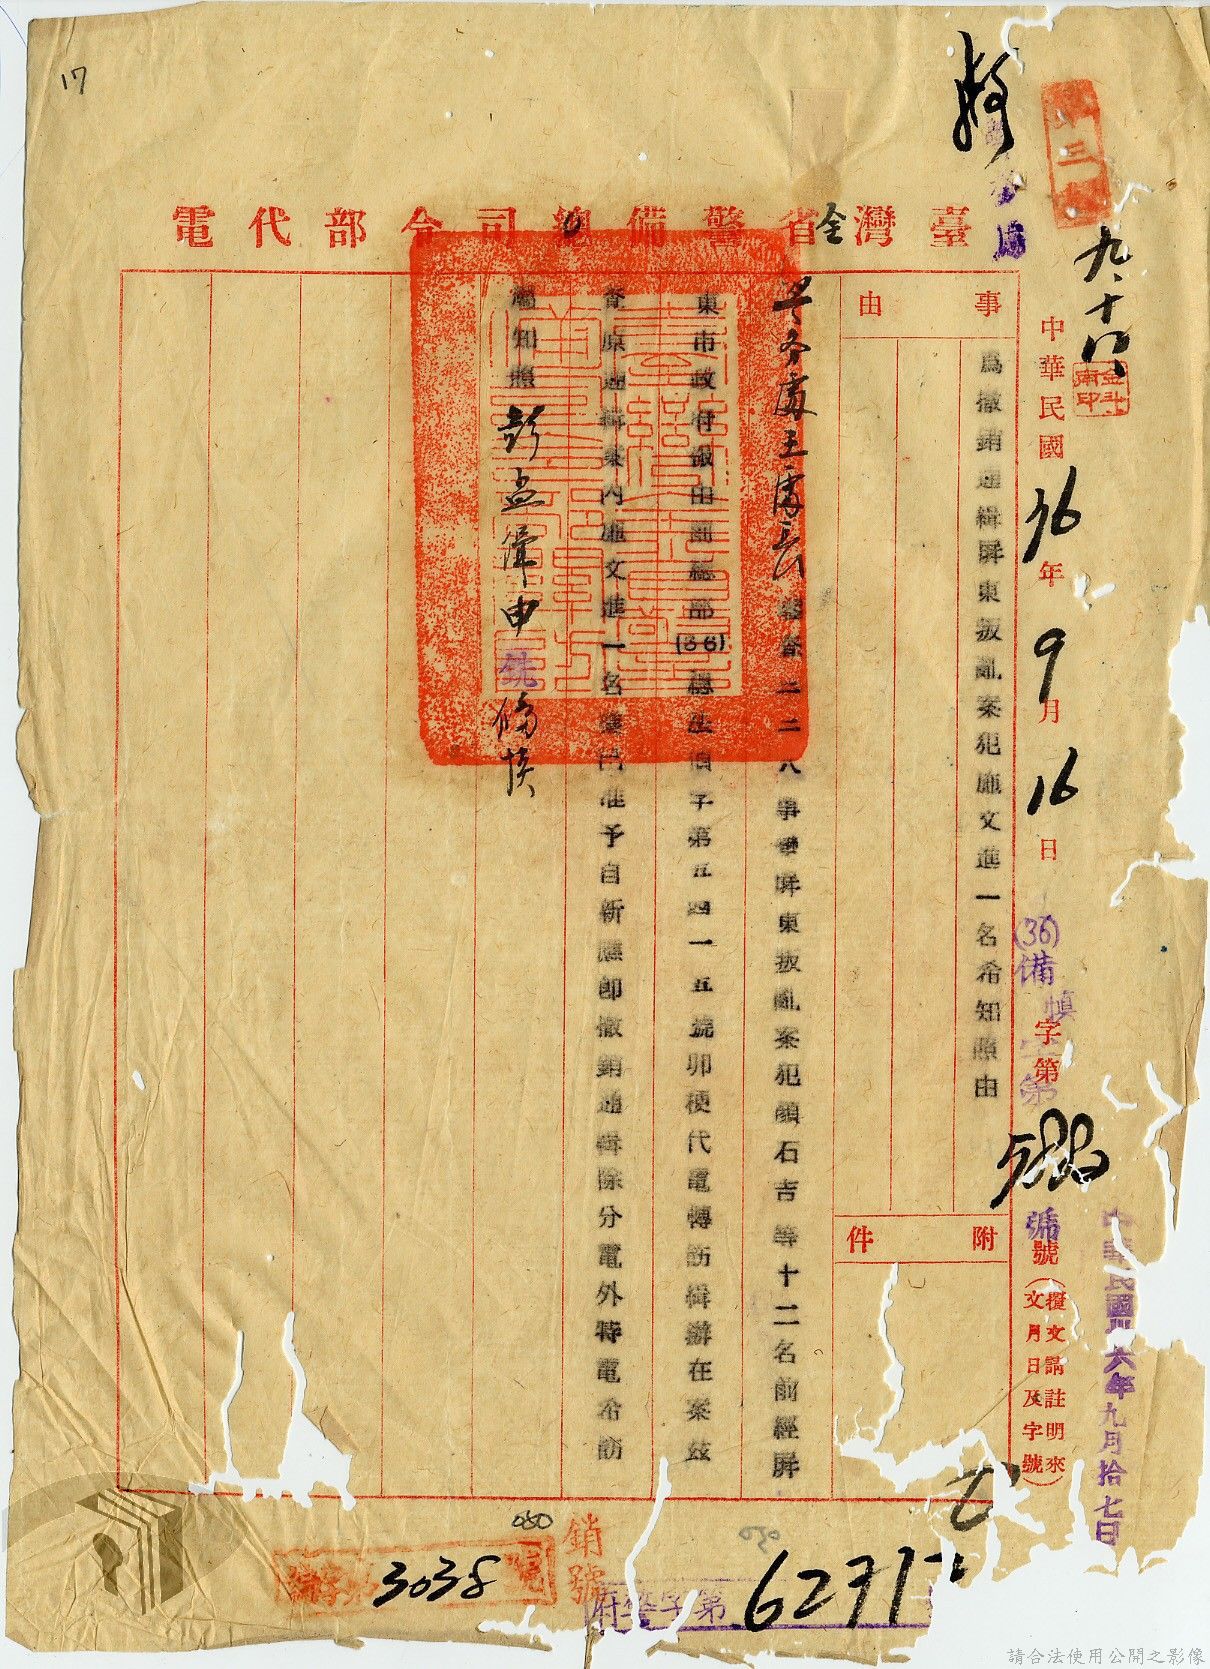 17
第三
九、十八
臺灣全省警備總司令部代電
中華民國36年9月16日
(36)備
字第
號
(覆文請註明來文月日及字號)
中華民國卅六年九月拾七日
事由
為撤銷通緝屏東叛亂案犯施文進一名希知照由
附件
處王處長
查二二八事變屏東叛亂案犯顏石吉等十二名前經屏
東市政府報由前總部(36)總法
字第五四一五號卯梗代電轉飭緝辦在案茲
查原通緝案內施文進一名業已准予自新應即撤銷通緝除分電外特電希飭
屬知照
彭孟緝申銑備慎
銷號
3038
府
字第
請合法使用公開之影像